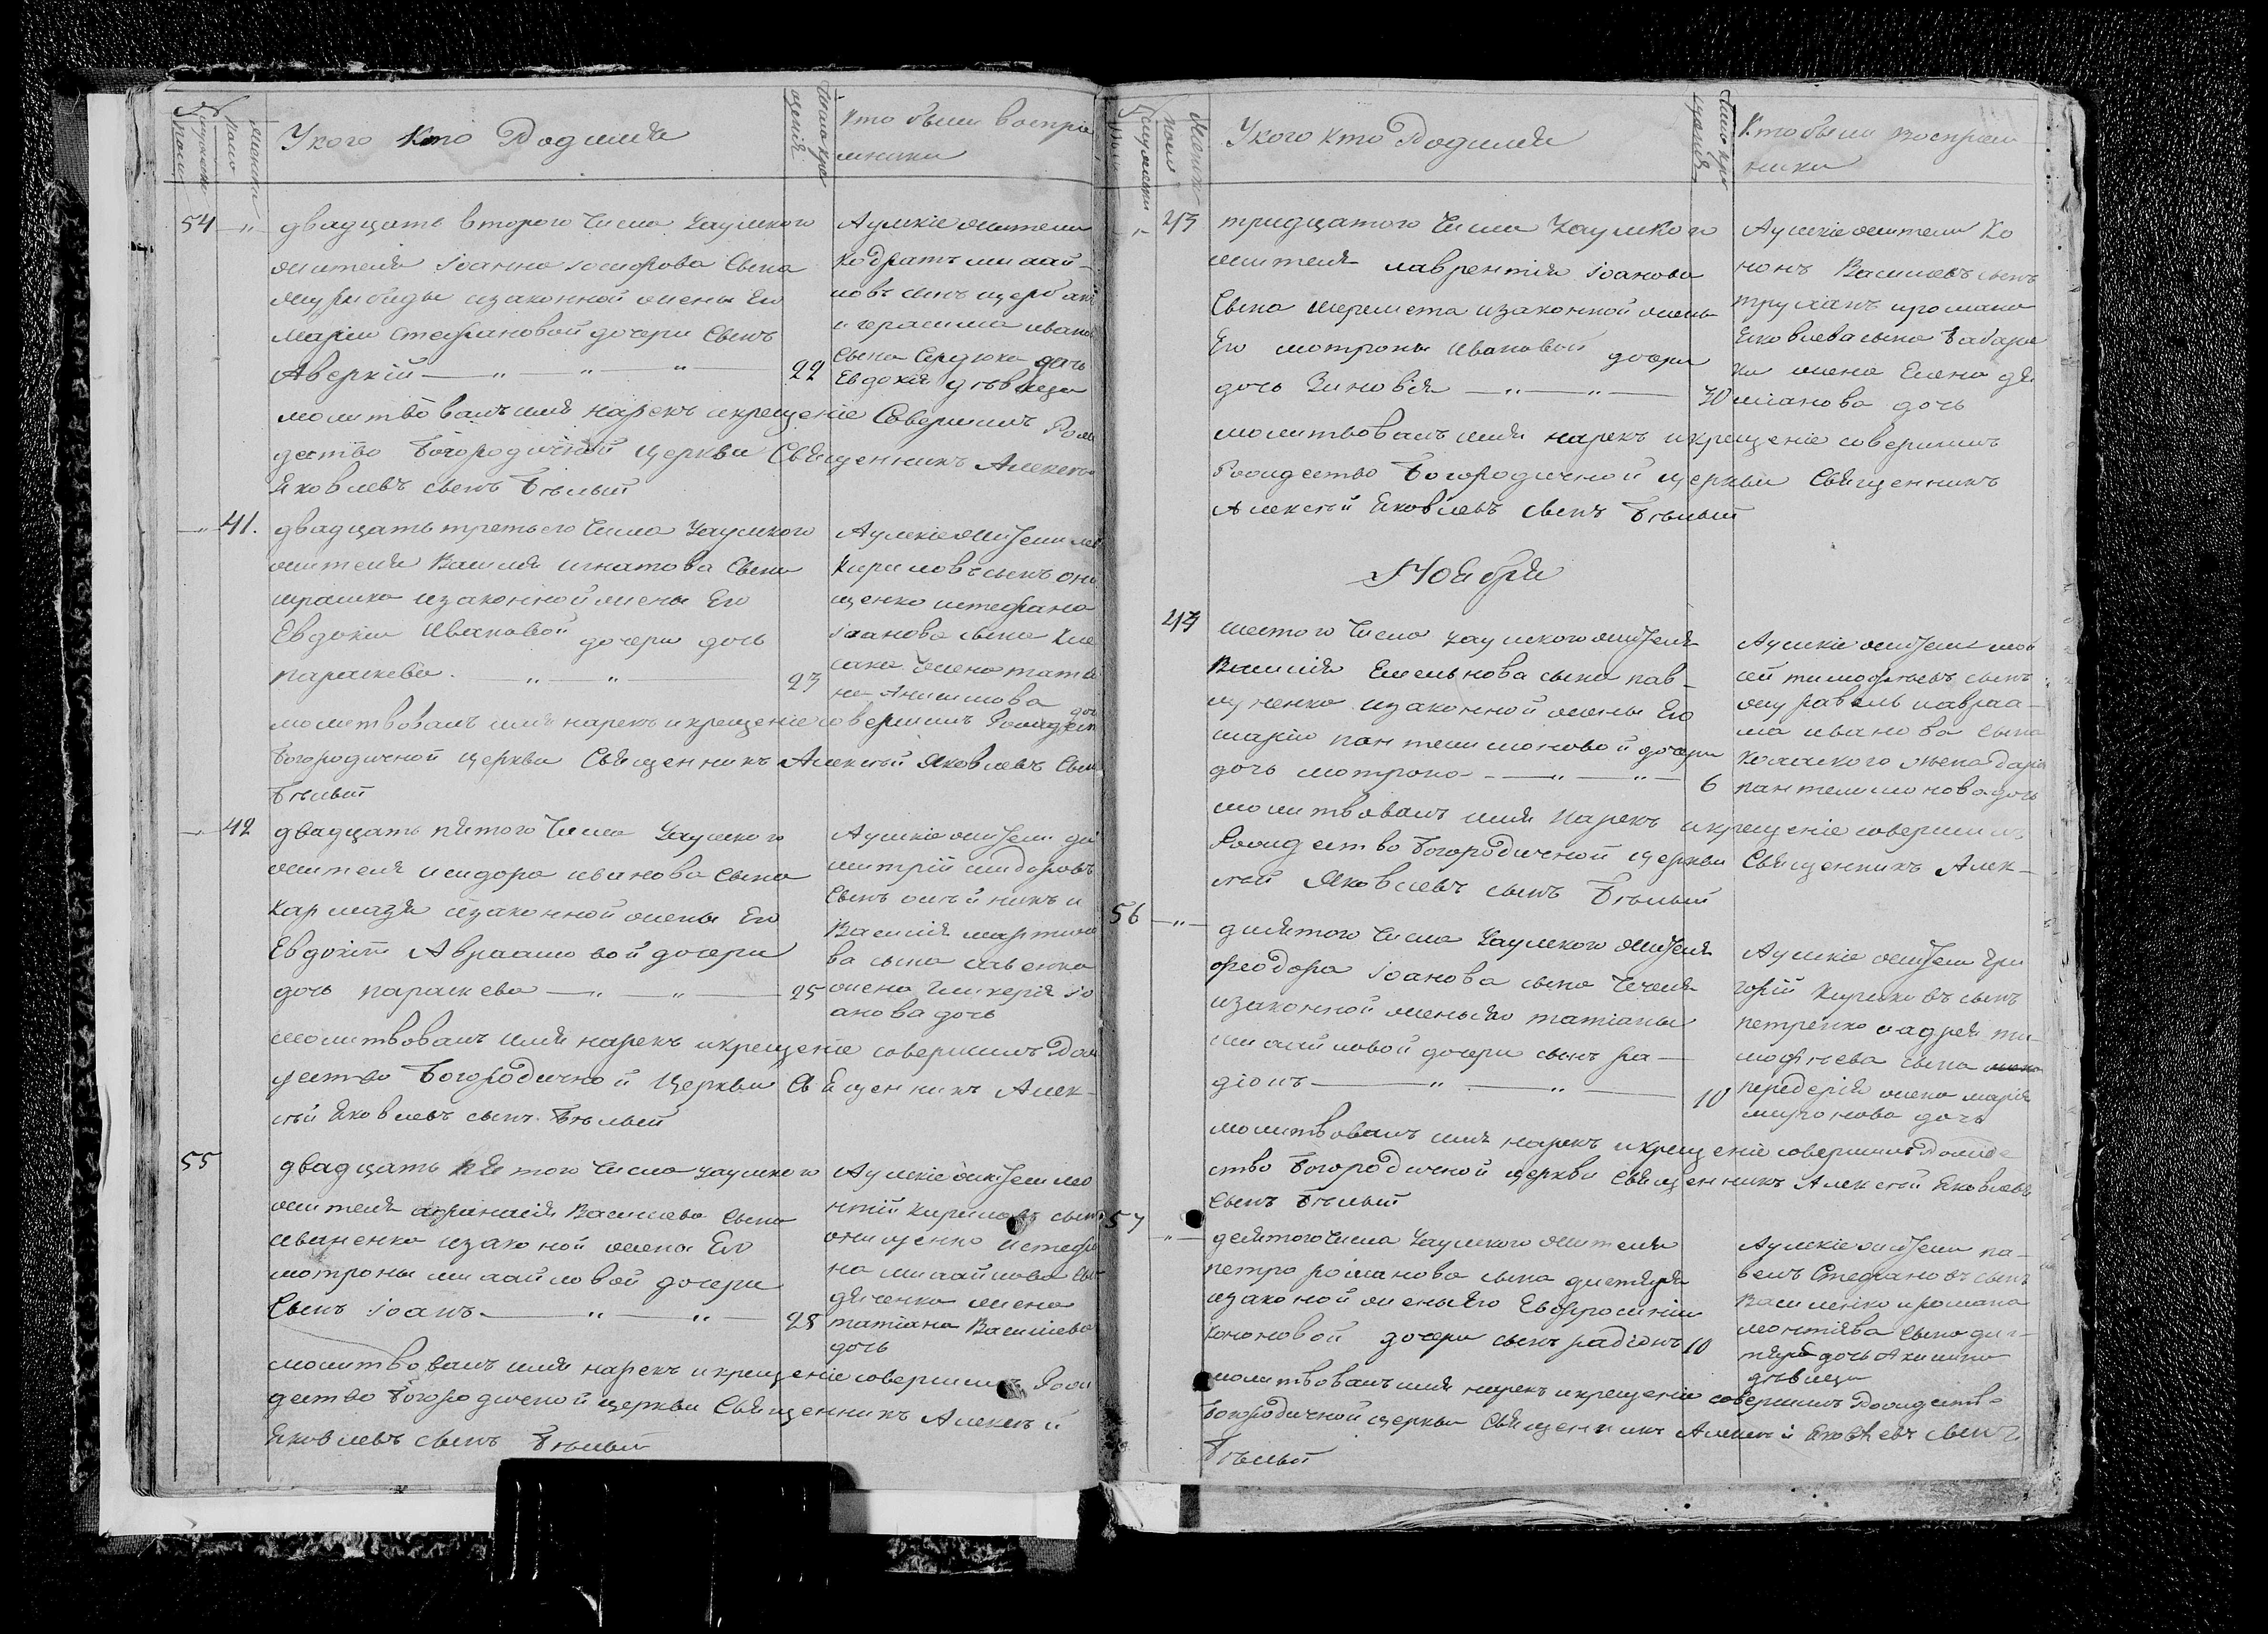 У кого кто Родился
Кто были воспріе
мники
54 двадцать второго Числа Уаулского
жителя Іоанна Іосифова Сына
изаконной жены Его
Маріи Стефановой дочери Сынъ
Аверкій 22
Аулскіе жители
Кодратъ михай-
ловъ сынъ щербак
и герасима иванов
сына Сердюка дочь
Евдокія дѣвица
молитвовалъ имя нарекъ икрещеніе Совершилъ Рож
дество Богородичной Церкви Священникъ Алексей
Яковлевъ сынъ Бѣлый
41. двадцать третьего Числа Уаулского
жителя Василія игнатова Сына
изаконной жены Его
Евдокіи Ивановой дочери дочь
параскева 23
Аулскіе жители
Кириловъ сынъ они
щенко истефана
Іоанова сына
жена татія
на Анисимова доч
молитвовалъ имя нарекъ икрещеніе совершилъ Рождест
Богородичной церкви Священникъ Алексѣй Яковлевъ Сын
Бѣлый
42 двадцать пятого Числа Уаулского
жителя исидора иванова Сына
изаконной жены Его
Евдокіи Авраамовой дочери
дочь параскева 25
Аулскіе жители ди
митрій сидоровъ
Сынъ олейникъ и
Василія мартино
ва сына савенка
жена гликерія Іо
анова дочь
молитвовалъ имя нарекъ икрещеніе совершилъ Рож
дество Богородичной Церкви Священникъ Алек-
сѣй Яковлевъ сынъ Бѣлый
55 двадцать пятого Числа уаулского
жителя афанасія Василева Сына
иваненка изаконой жены Его
мотроны михайловой дочери
Сынъ Іоанъ 28
Аулскіе жители ле
нтій Кириловъ сынъ
онищенко истефа
на михайлова Сы
дяченка жена
татіана Василіева
дочь
молитвовалъ имя нарекъ икрещеніе совершилъ Рож
дество Богородичной церкви Священникъ Алексѣй
Яковлевъ сынъ Бѣлый
У кого кто Родился
Кто были восприем
ники
43 тридцатого Числа Уаулского
жителя лаврентія Іоанова
Сына шеремета изаконной жены
Его мотроны Ивановой дочери
дочь Зиновія 30
Аулскіе жители Ко
нонъ Василевъ сынъ
труханъ ироман
Яковлева сына Бабаре
ки жена Елена де
міанова дочь
молитвовалъ имя нарекъ икрещеніе совершилъ
Рождество Богородичной церкви Священникъ
Алексѣй Яковлевъ сынъ Бѣлый
Ноября
44 шестого Числа уаулского жителя
Василія Емельнова сына пав-
изаконной жены Его
маріи пантелимоновой дочери
дочь мотрона 6
Аулскіе жители мой
сей тимофѣевъ сынъ
журавель иавраа-
ма иванова Сына
жена дарія
пантелимонова дочь
молитвовалъ имя нарекъ икрещеніе совершилъ
Рождество Богородичной церкви Священникъ Алек-
сѣй Яковлевъ сынъ Бѣлый
56 дисятого Числа Уаулского жителя
феодора Іоанова сына Чечеля
изаконной жены Его татіаны
михайловой дочери сынъ ра-
діонъ 10
Аулскіе жители гри
горій Кириловъ сынъ
петренко иадрея ти-
мофѣева сына
передерія жена марія
миронова дочь
молитвовалъ имя нарекъ икрещеніе совершилъ Рожде
ство Богородичной церкви Священникъ Алексѣй Яковлевъ
сынъ Бѣлый
57 десятого Числа Уаулского жителя
петра романова сына дигтяря
изаконой жены Его Евфросиніи
Кононовой дочери сынъ радіонъ 10
Аулскіе жители па-
велъ Стефановъ сынъ
Василенко иромана
леонтіева сына диг-
тяря дочь Акилина
дѣвица
молитвовалъ имя нарекъ икрещеніе совершилъ Рождество
Богородичной церкви Священникъ Алексѣй Яковлевъ сынъ
Бѣлый